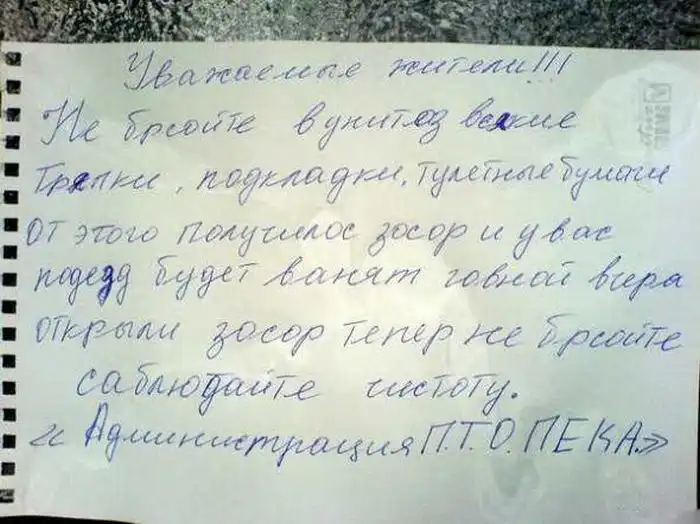 Уважаемые жители!!!
Не брсойте в унитоз всякие
Тряпки, подкладки, тулетные бумаги
от этого получилос засор и у вас
подезд будет ванят говной вчера
открыли засор тепер не брсойте
саблюдайте чистоту.
«Администрация П.Т.О.ПЕКА.»